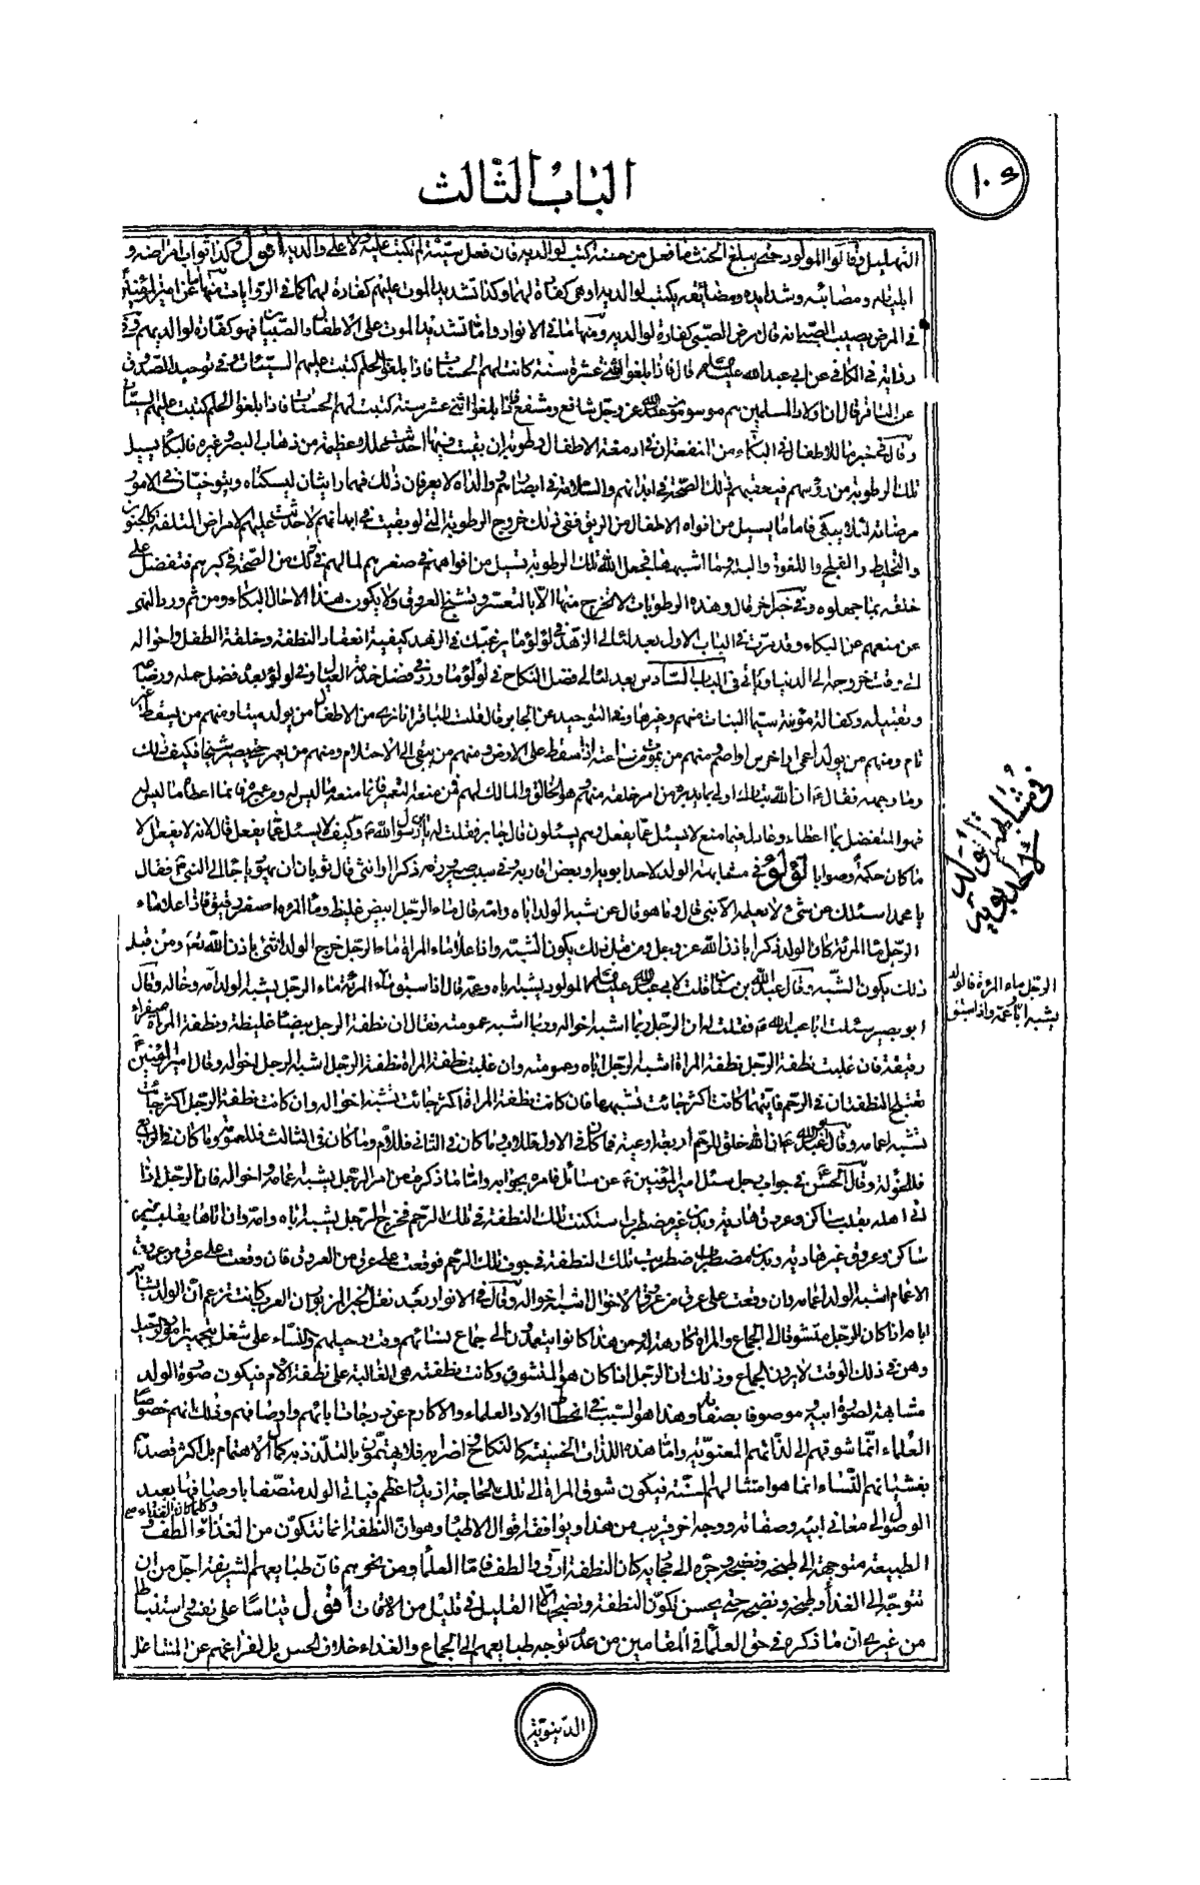 ١٠٤
الباب الثالث
التهليل وقالوا المولود حتى يبلغ الحنث ما فعل من حسنة كتب لوالديه فان فعل سيئة لم تكتب عليه ولا على والديه اقول وكذا ثواب امراضه و
ومصائبه وشدايده يكتب لوالديه او هى كفارة لهما وكذا تشديد الموت عليهم كفارة لهما كما فى الروايات منها ما عن امير المؤمنين
فى المرض يصيب الصبى انه قال مرض الصبى كفارة لوالديه ومنها ما فى الانوار واما تشديد الموت على الاطفال والصبيان فهو كفارة لوالديهم وفى
رواية فى الكافى عن ابى عبد الله عليه السلام قال فاذا بلغوا اثنى عشرة سنة كانت لهم الحسنات فاذا بلغوا الحلم كتبت عليهم السيئات وفى توحيد الصدوق
عن الباقر قال ان اولاد المسلمين هم موسومون عند الله عز وجل شافع ومشفع فاذا بلغوا اثنى عشر سنة كتبت لهم الحسنات فاذا بلغوا الحلم كتبت عليهم السيئات
وقال فى خبر ما للاطفال فى البكاء من المنفعة ان فى ادمغة الاطفال رطوبة ان بقيت فيها احدثت عللا عظيمة من ذهاب البصر وغيره فالبكاء يسيل
تلك الرطوبة من رؤسهم فيعقبهم ذلك الصحة فى ابدانهم والسلامة فى ابصارهم والداه لا يعرفان ذلك فهما دايبان ليسكتاه ويتوخيان فى الامور
مرضاته لئلا يبكى فاما ما يسيل من افواه الاطفال من الريق ففى ذلك خروج الرطوبة التى لو بقيت فى ابدانهم لاحدثت عليهم الامراض المتلفة كالجنون
والتخليط والفالج واللقوة وما اشبهها فجعل الله تلك الرطوبة تسيل من افواههم فى صغرهم لما لهم فى ذلك من الصحة فى كبرهم فتفضل على
خلقه بما جهلوه وفى خبر اخر قال وهذه الرطوبات لا تخرج منها الا بالتعسر وتشنج العروق ولا يكون هذا الا حال البكاء ومن ثم ورد النهى
عن منعهم عن البكاء وقد مرت فى الباب الاول بعد لئالى الزهد فى لؤلؤ ما يرغبك فى الزهد كيفية انعقاد النطفة وخلقة الطفل واحواله
الى وقت خروجه الى الدنيا وياتى فى الباب السادس بعد لئالى فضل النكاح فى لؤلؤ ما ورد فى فضل خدمة العيال وفى لؤلؤ بعده فضل حمله ورضاعه
وتقبيله وكفالة مؤنته سيما البنات منهم وغيرها وفى التوحيد عن الجابر قال قلت للباقر انا نرى من الاطفال من يولد ميتا ومنهم من يسقط غير
تام ومنهم من يولد اعمى او اخرس او اصم ومنهم من يموت من ساعته اذا سقط على الارض ومنهم من يبقى الى الاحتلام ومنهم من يعمر حتى يصير شيخا فكيف ذلك
وما وجهه فقال ان الله تبارك اولى بما يدبره من امر خلقه منهم وهو الخالق والمالك لهم فمن منعه التعمير فانما منعه ما ليس له ومن عمره فانما اعطاه ما ليس له
فهو المتفضل بما اعطاه وعادل فيما منع لا يسئل عما يفعل وهم يسئلون قال جابر فقلت له يابن رسول الله وكيف لا يسئل عما يفعل قال لانه لا يفعل الا
ما كان حكمة وصوابا لؤلؤ فى مشابهة الولد لاحد ابويه او بعض اقاربه وفى سبب صيرورته ذكرا او انثى قال ثوبان ان يهوديا جاء الى النبى فقال
يا محمد اسئلك عن شىء لا يعلمه الا نبى قال وما هو قال عن شبه الولد اباه وامه قال ماء الرجل ابيض غليظ وماء المرءة اصفر رقيق فاذا علا ماء
الرجل ماء المرئة كان الولد ذكرا باذن الله عز وجل ومن قبل ذلك يكون الشبه واذا علا ماء المراة ماء الرجل خرج الولد انثى باذن الله تعم ومن قبل
ذلك يكون الشبه وقال عبد الله بن سنان قلت لابى عبد الله عليه السلام المولود يشبه اباه وعمه قال اذا سبق ماء المرئة ماء الرجل يشبه الولد امه وخاله وقال
ابو بصير سئلت ابا عبد الله فقلت له ان الرجل ربما اشبه اخواله وربما اشبه عمومته فقال ان نطفة الرجل بيضاء غليظة ونطفة المراة صفراء
رقيقة فان غلبت نطفة الرجل نطفة المراة اشبه الرجل اباه وعمومته وان غلبت نطفة المراة نطفة الرجل اشبه الرجل اخواله وقال امير المؤمنين
تعتلج النطفتان فى الرحم فايتهما كانت اكثر جائت تشبهها فان كانت نطفة المراة اكثر جائت تشبه اخواله وان كانت نطفة الرجل اكثر جائت
تشبه اعمامه وقال ابو عبد الله ان الله خلق للرحم اربعة اوعية فما كان فى الاول فللاب وما كان فى الثانى فللام وما كان فى الثالث فللعمومة وما كان فى الرابع
فللخؤلة وقال الحسن فى جواب رجل سئل امير المؤمنين عن مسائل فامره بجوابه واما ما ذكرت من امر الرجل يشبه اعمامه واخواله فان الرجل اذا
اتى اهله بقلب ساكن وعروق هادية وبدن غير مضطرب استكنت تلك النطفة فى تلك الرحم فخرج الرجل يشبه اباه وامه وان اتاها بقلب غير
ساكن وعروق غير هادية وبدن مضطرب اضطربت تلك النطفة فى جوف تلك الرحم فوقعت على عرق من العروق فان وقعت على عرق من عروق
الاعمام اشبه الولد اعمامه وان وقعت على عرق من عروق الاخوال اشبه اخواله وقال فى الانوار بعد نقل الخبر المزبور ان العرب كانت تزعم ان الولد يشابه
اباه اذا كان الرجل متشوقا الى الجماع والمراة كارهة له ومن هذا كانوا يتعمدون الى جماع نسائهم وقت رحيلهم والنساء على شغل بتجهيز امور الرحيل
وهن فى ذلك الوقت لا يردن الجماع وذلك ان الرجل اذا كان هو المتشوق وكانت نطفته هى الغالبة على نطفة الام فيكون صورة الولد
مشابهة لصورة ابيه موصوفا بصفاته وهذا هو السبب فى انحطاط اولاد العلماء والاكارم عن درجات ابائهم واوضاعهم وذلك انهم خصوصا
العلماء انما شوقهم الى لذاتهم المعنوية واما هذه اللذات الحسية كالنكاح واضرابه فلا يهتمون بالتلذذ به كمال الاهتمام بل اكثر قصدهم
بغشيانهم للنساء انما هو امتثالهم السنة فيكون شوق المراة الى تلك الحاجة ازيد واعظم فياتى الولد متصفا باوصافها بعيد
الوصول الى معانى ابيه وصفاته ووجه اخر قريب من هذا ويوافقه اقوال الاطباء وهو ان النطفة انما تتكون من الغذاء وكلما كان الغذاء الطف و
الطبيعة متوجهة الى طبخه ونضجه وجره الى مجاريه كان النطفة ارق والطف فاما العلماء ومن نحوهم فان طبايعهم الشريفة اجل من ان
تتوجه الى الغذاء وطبخه ونضجه حتى يحسن تكون النطفة ونضجها الا القليل فى قليل من الاوقات اقول قياسا على نفسى واستنباطا
من غيرى ان ما ذكره فى حق العلماء فى المقامين من عدم توجه طبايعهم الى الجماع والغذاء خلاف الحس بل لفراغهم عن المشاغل
الدنيوية
فى مشابهة الولد
لاحد ابويه
الرجل ماء المرئة فالولد
يشبه اباه وعمه واذا سبق